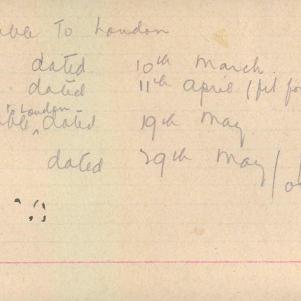 To London
dated 10th March
dated 11th April
To London
dated 19th May
dated 29th May /